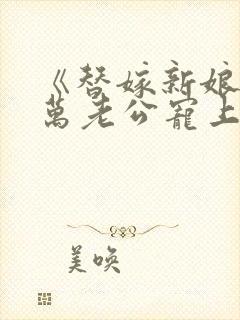 《替嫁新娘
萬老公寵上
美喚